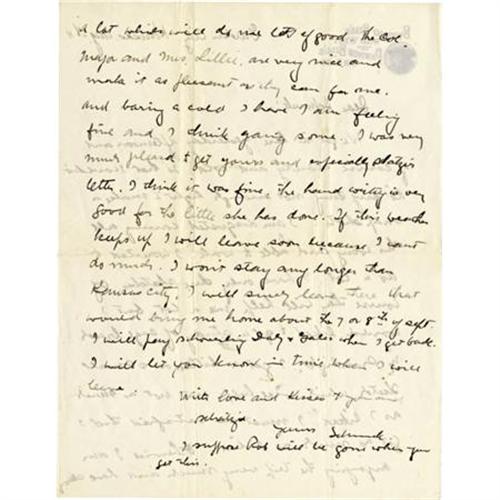 a lot which will do me lot of good. The Col.
Major and Mrs. Lillie, are very nice and
make it as pleasant as they can for me.
and baring a cold I have I am feeling
fine and I think gaing some. I was very
much pleasd to get yours and especially
letter. I think it was fine, the hand writing is very
good for the little she has done. If this weather
keeps up I will leave soon because I cant
do much. I won't stay any longer than
Kansas City. I will surely leave there that
would bring me home about the 7 or 8th of Sept.
I will pay Daly + when I get back.
I will let you know in time when I will
leave
With love and kisses to you and
yours
I suppose Rob will be gone when you
get this.